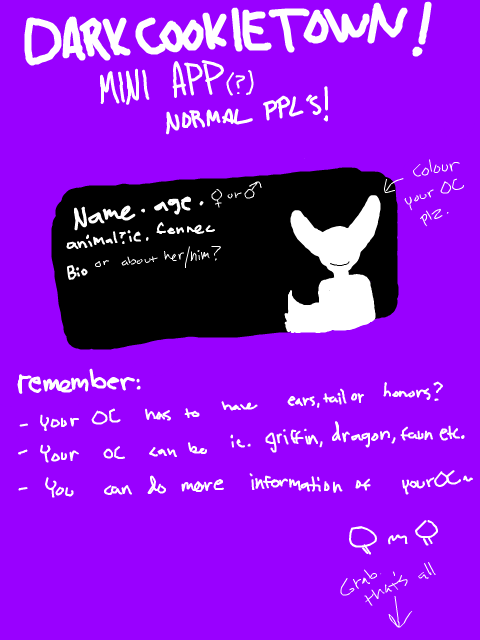 DARKCOOKIETOWN!
MINI APP(?)
NORMAL PPL'S!
Colour
your OC
plz.
Name. age. ♀ or ♂
animal?ie. fennec
Bio or about her/him?
remember:
- Your OC has to have ears, tail or honors?
- Your oc can be ie. griffin, dragon, faun etc.
- You can do more information of your OC~
Grab.
that's all